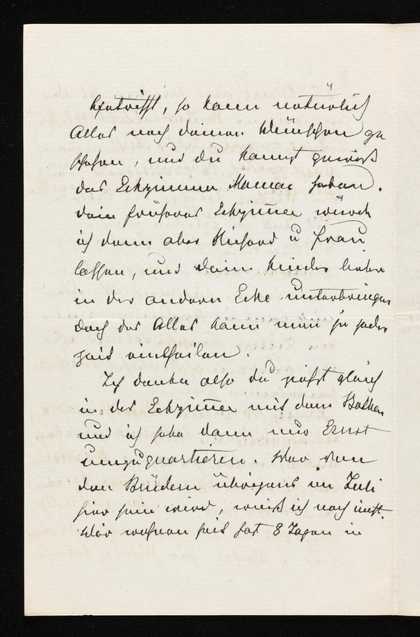 betrifft, so kann natürlich
Alles nach deinen Wünschen ge
schehen, und du kannst gewiß
das Eckzimmer Mamas haben.
Dein früheres Eckzimer würde
ich dann aber Richard u Frau
lassen, und Dein Kinder lieber
in der anderen Ecke unterbringen
doch das Alles kann man ja jeder
zeit
Ich denke also du ziehst gleich
in das Eckzimer mit dem Balkon
und ich habe dann nur Ernst
umzuquartieren. Wer von
den Brüdern übrigens im Juli
hier sein wird, weiß ich noch nicht.
Wir wohnen seit fast 8 Tagen in